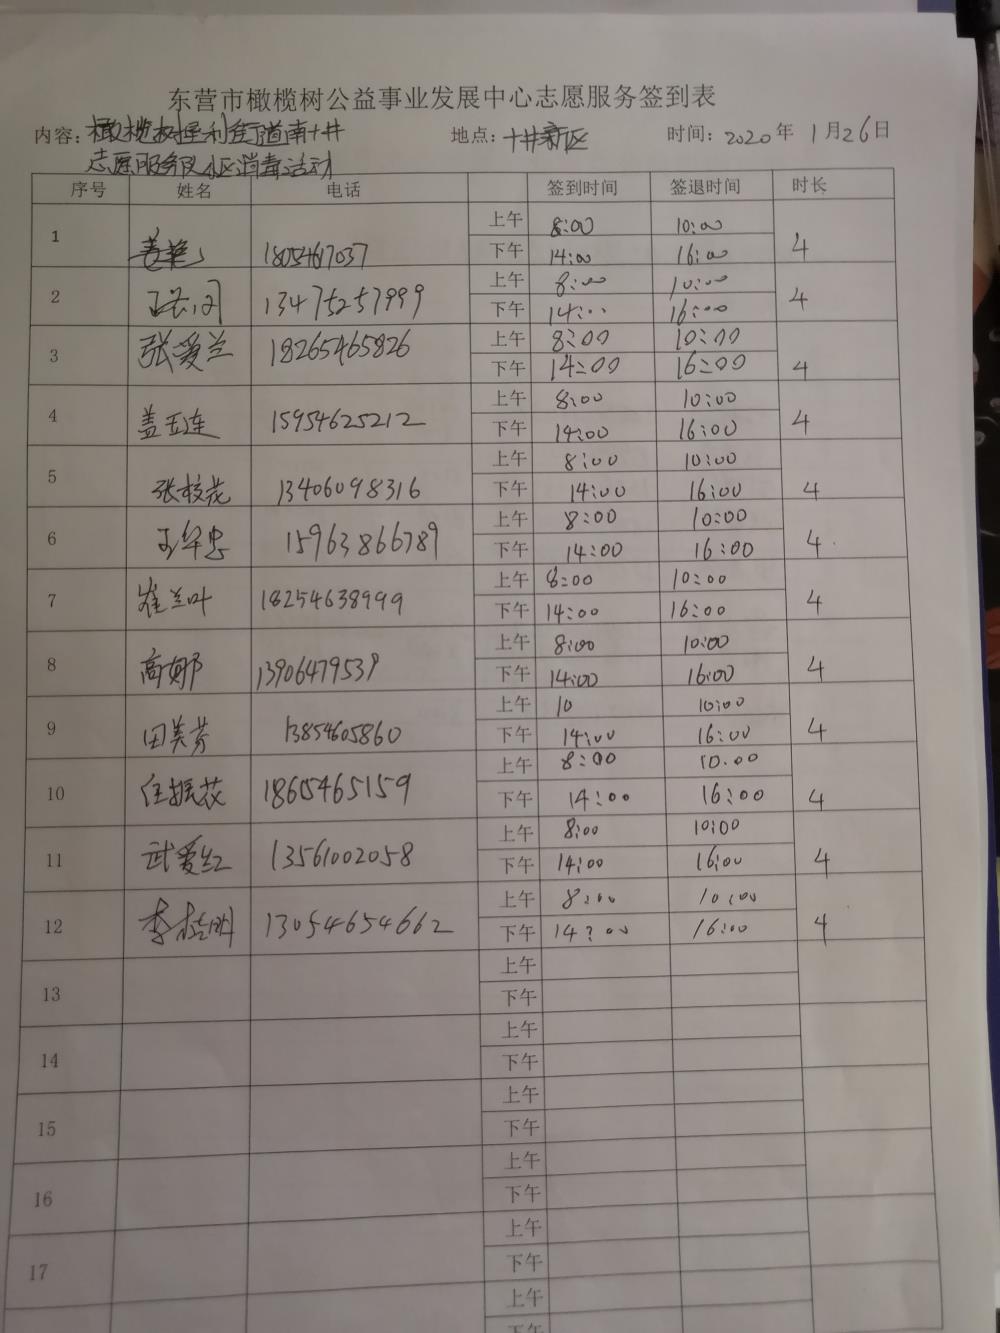 东营市橄榄树公益事业发展中心志愿服务签到表
内容：橄榄树垦利街道南十井 地点：十井新区 时间：2020年1月26日
志愿服务队小区消毒活动
序号 姓名 电话 签到时间 签退时间 时长
上午 8:00 10:00
1 姜艳 1805467037 4
下午 14:00 16:00
上午 8:00 10:00
2 13475257999 4
下午 14:00 16:00
上午 8:00 10:00
3 张爱兰 18265465826 4
下午 14:00 16:00
上午 8:00 10:00
4 盖玉连 15954625212 4
下午 14:00 16:00
上午 8:00 10:00
5 张校花 13406098316 4
下午 14:00 16:00
上午 8:00 10:00
6 王华忠 15963866789 4
下午 14:00 16:00
上午 8:00 10:00
7 崔兰叶 18254638999 4
下午 14:00 16:00
上午 8:00 10:00
8 高娜 13906479539 4
下午 14:00 16:00
上午 10 10:00
9 田美芳 13854605860 4
下午 14:00 16:00
上午 8:00 10:00
10 任振花 18605465159 4
下午 14:00 16:00
上午 8:00 10:00
11 武爱红 13561002058 4
下午 14:00 16:00
上午 8:00 10:00
12 李桂明 13054654662 4
下午 14:00 16:00
上午
13
下午
上午
14
下午
上午
15
下午
上午
16
下午
上午
17
下午
上午
下午